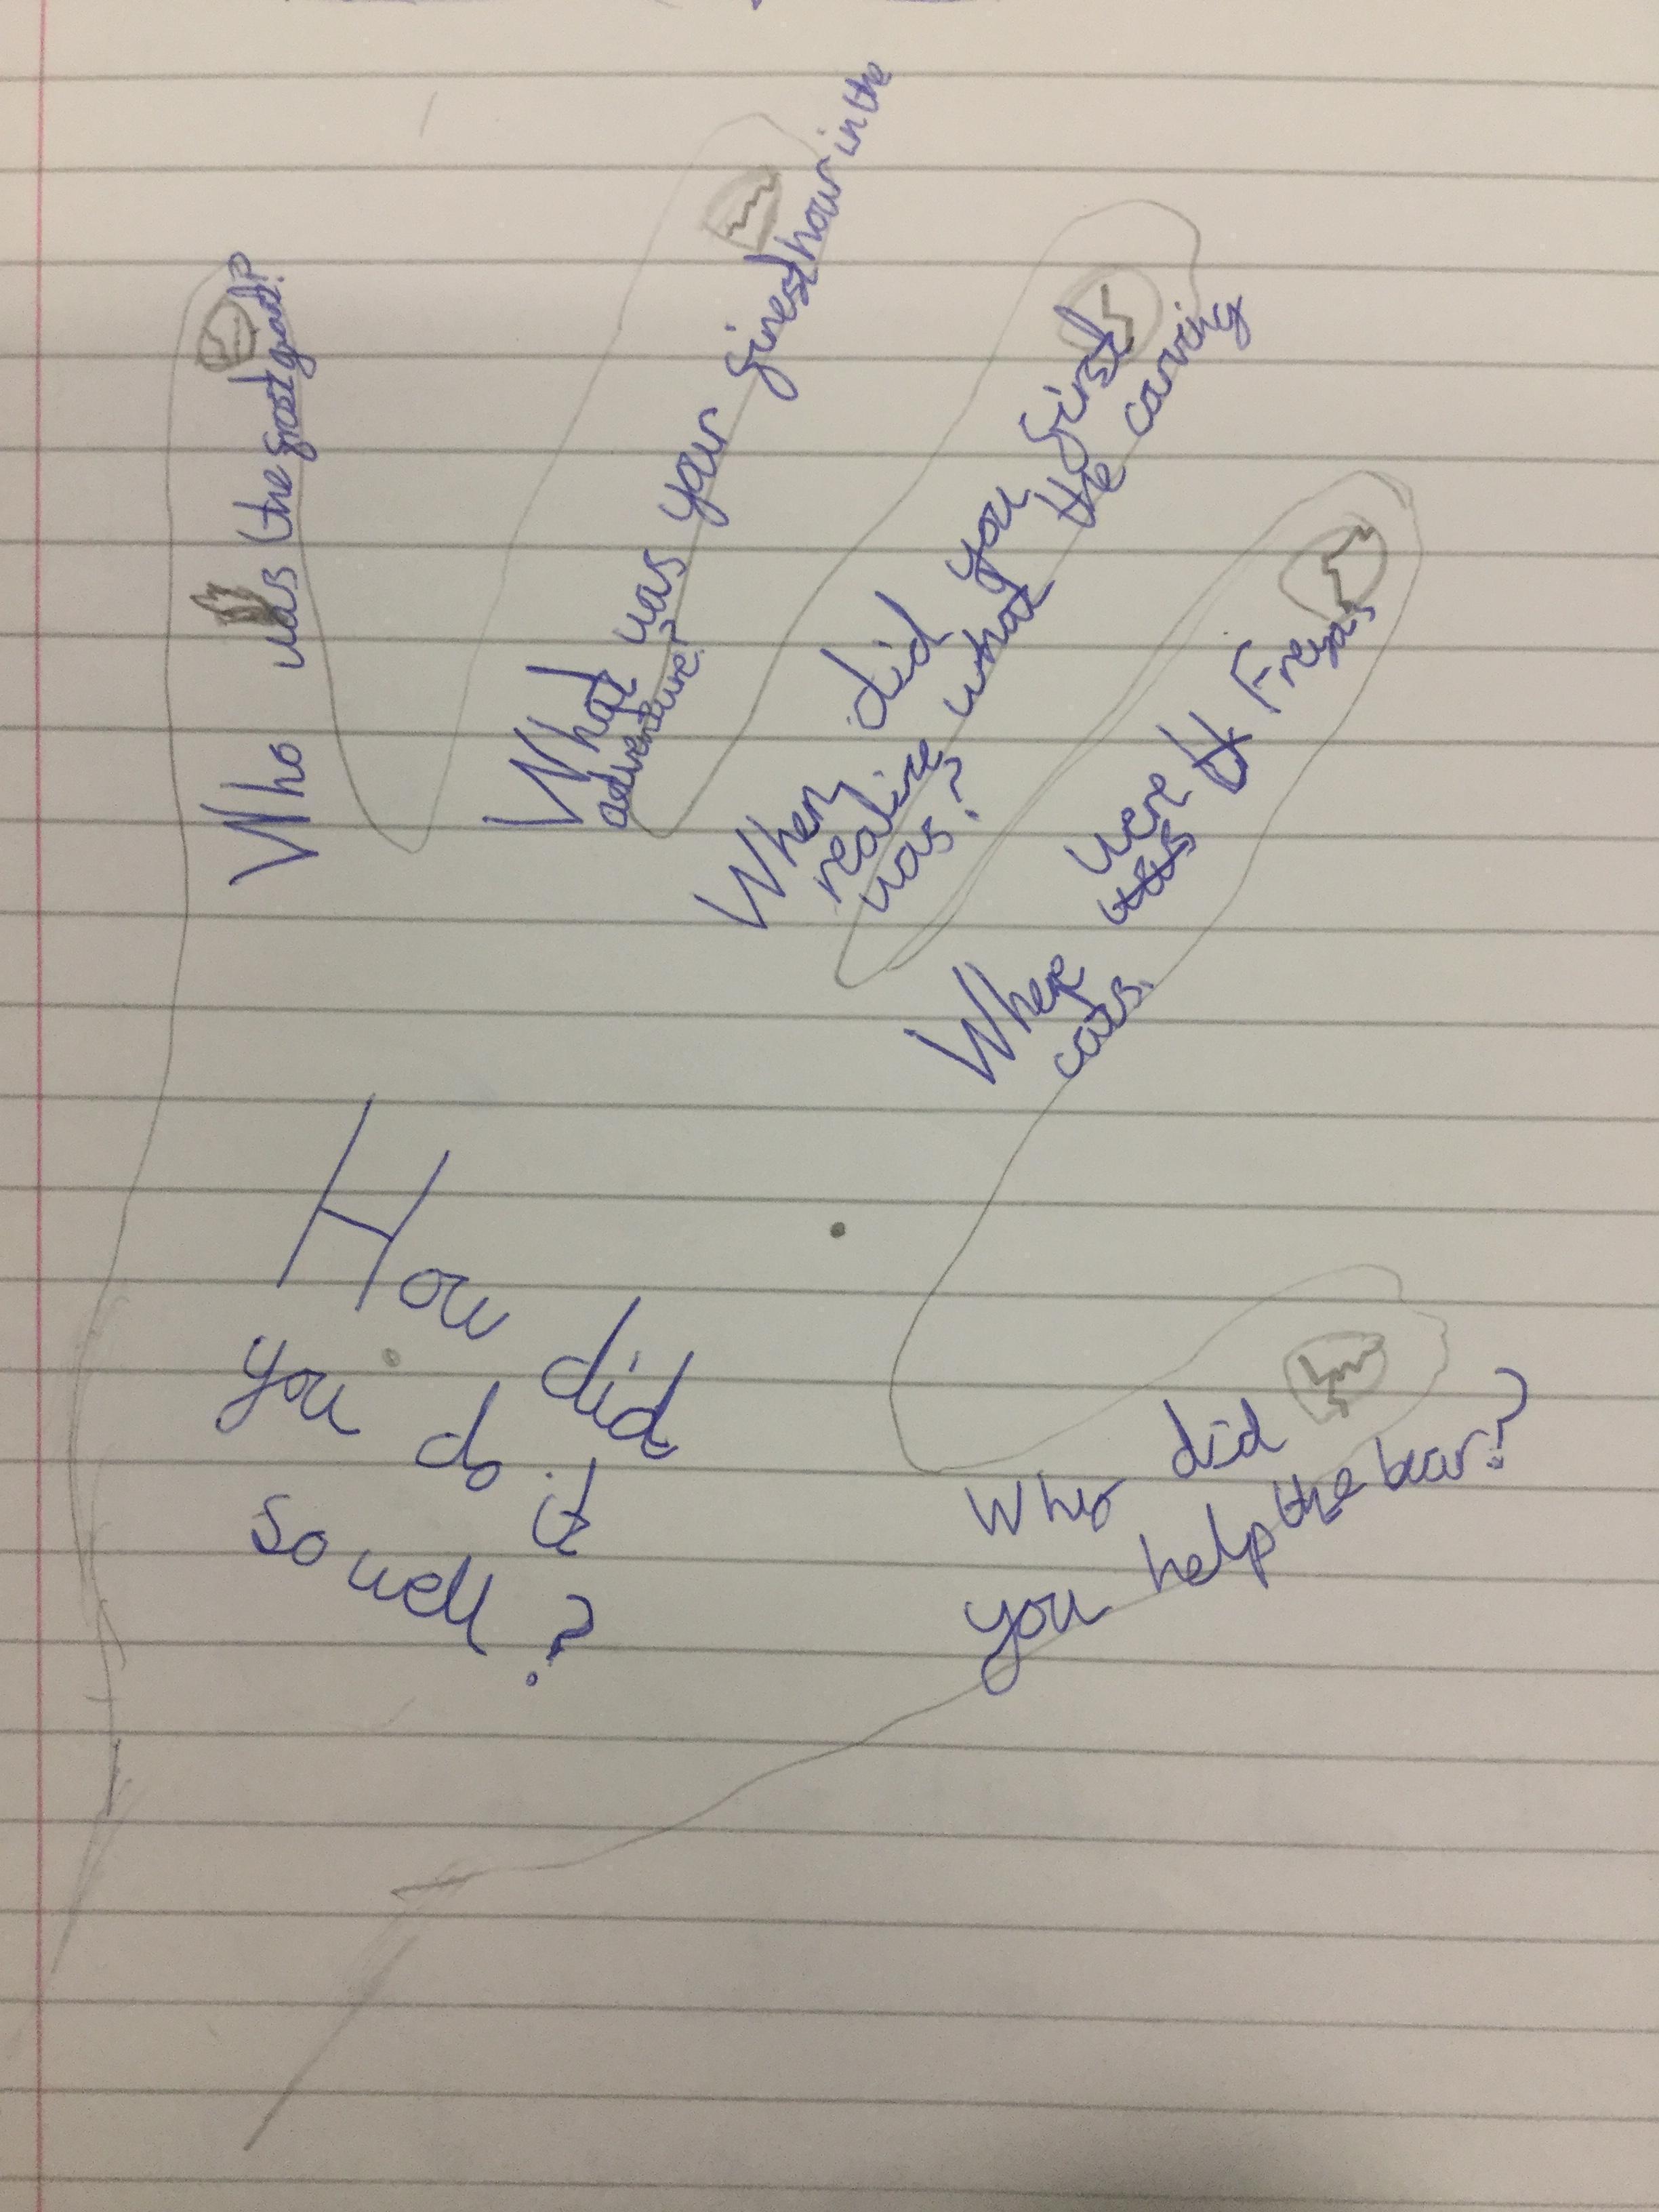 Who was the frost giant?
What was your finest hour in the
adventure?
When did you first
realise what the carving
was?
Where were Freyas
cats.
Why did
you help the bear?
How did
you do it
so well?